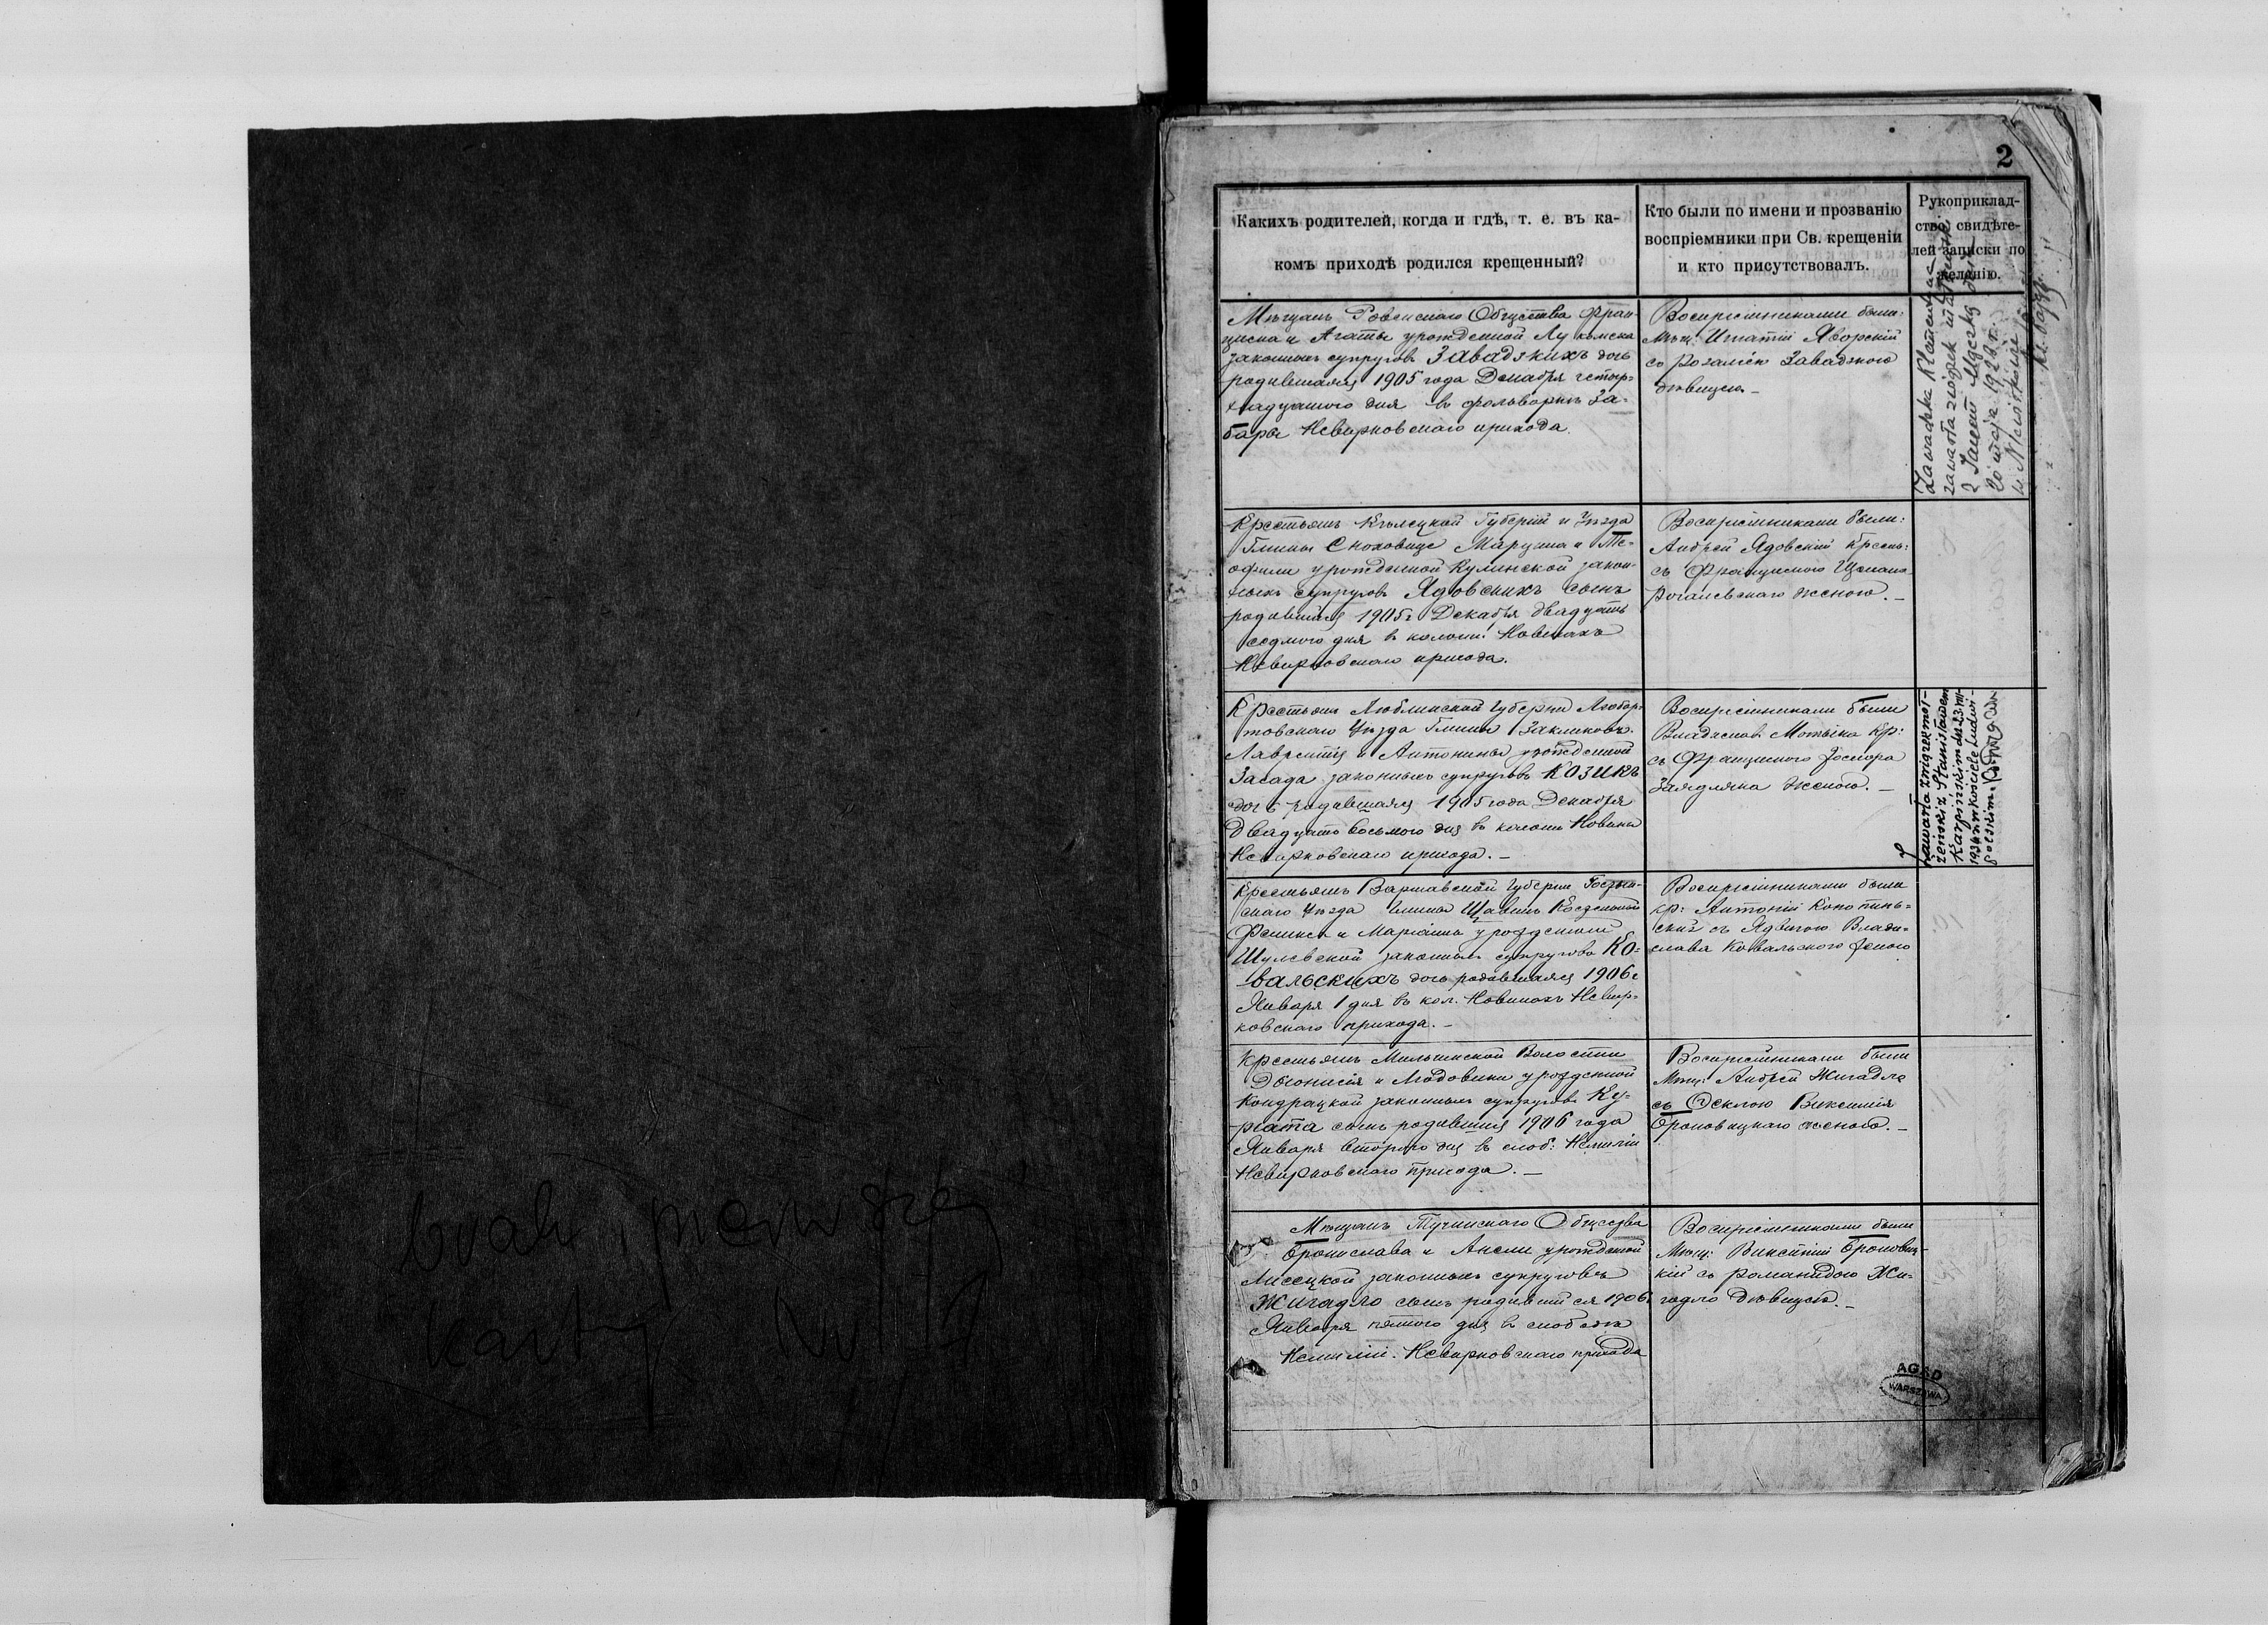 brak pierwszej
karty
2
Какихъ родителей, когда и гдѣ, т. е. въ ка-
комъ приходѣ родился крещенный?
Кто были по имени и прозванію
воспріемники при Св. крещеніи
и кто присутствовалъ.
Рукоприклад-
ство свидѣте-
лей записки по
желанію.
Мѣщанъ Ровенскаго Общества Фран-
циска и Агаты урожденной
законныхъ супруговъ Завадзкихъ дочь
родившаяся 1905 года Декабря четыр-
надцатого дня въ фольваркѣ За-
бара Невирковскаго прихода.
Воспріемниками были:
Мѣщ: Игнатій Яворскій
съ Розалією Завадзкою
дѣвицею. –
Zawadzka Klementyna
zawarła związek małżeński
z Janem
20 maja 1928 r.
w
Крестьянъ Кѣлецкой Губерніи и Уѣзда
Гмины Сноховице Марцина и Те-
офили урожденной Кулинской закон-
ныхъ супруговъ Ядовскихъ сынъ
родившійся 1905 г Декабря двадцать
седмого дня в колоніи Новинахъ
Невирковскаго прихода.
Воспріемниками были:
Андрей Ядовскій крестьян:
съ Францишкою
Рогалевскаго женою. –
Крестьянъ Люблинской Губерніи Любар-
товскаго Уѣзда Гмины
Лаврентія и Антонины урожденной
Засада законныхъ супруговъ Козикъ
дочь родившаяся 1905 года Декабря
двадцать восьмого дня въ колоніи Новины
Невирковскаго прихода. –
Воспріемниками были
Владислав Мотыка кр:
съ Францишкою
женою. –
zawarła związek mał-
żeński z Stanisławem
Karpińskim dn. 23 VIII
1934 r. w kościele Ludwi-
polskim.
Крестьянъ Варшавской Губерніи Гостын-
скаго Уѣзда Гмины Щавинъ Косцельный
Феликса и Маріанны урожденной
Шулевской законныхъ супруговъ Ко-
вальскихъ дочь родившаяся 1906 г
Января 1 дня въ кол. Новинахъ Невир-
ковскаго прихода. –
Воспріемниками были
кр: Антоній Конопинь-
скій съ Ядвигою Влади-
слава Ковальского женою
Крестьянъ Волости
Діонисія и Людовики урожденной
Кондрацкой законныхъ супруговъ Ку-
ріата сынъ родившійся 1906 года
Января второго дня въ слоб: Немиліи
Невирковскаго прихода. –
Воспріемниками были
Мѣщ: Андрей Жигадло
съ Феклою Викентія
Броновицкаго женою. –
Мѣщанъ Тучинскаго Общества
Бронислава и Анели урожденной
Лисецкой законныхъ супруговъ
Жигадло сынъ родившійся 1906
Января пятого дня въ слободѣ
Немиліи. Невирковскаго прихода
Воспріемниками были
Мѣщ: Викентій Броновиц-
кій съ Романидою Жи-
гадло дѣвицею. –
AGAD
WARSZAWA